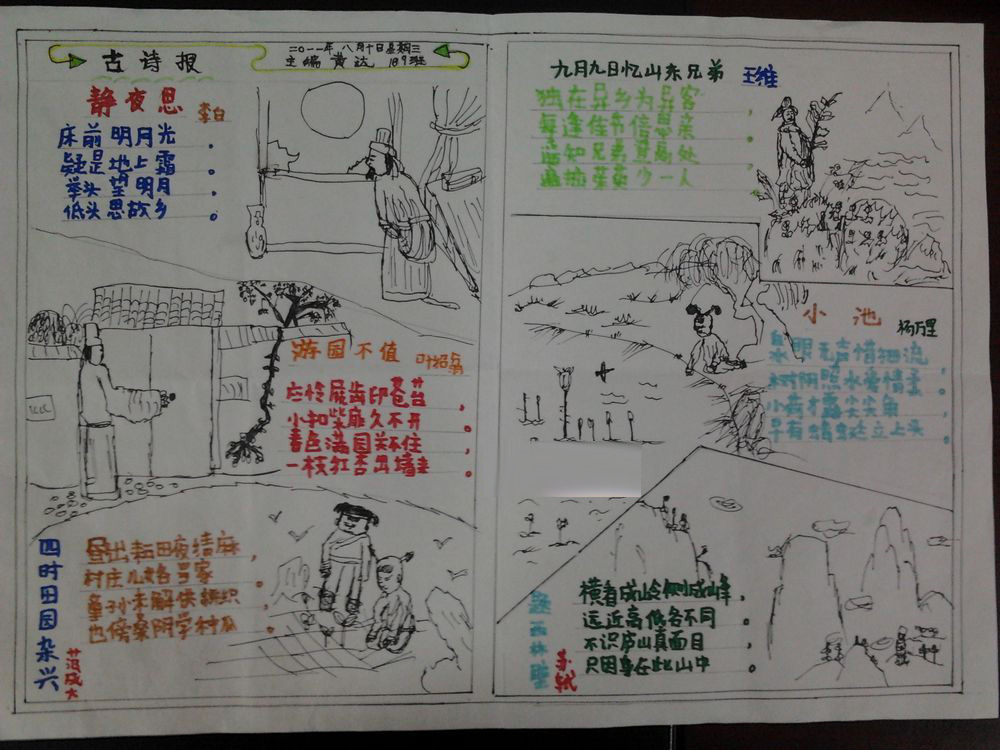 古诗报
二〇一一年八月十日星期三
主编 黄达 189班
静夜思 李白
床前明月光，
疑是地上霜。
举头望明月，
低头思故乡。
游园不值 叶绍翁
应怜屐齿印苍苔，
小扣柴扉久不开。
春色满园关不住，
一枝红杏出墙来。
四时田园杂兴
范成大
昼出耘田夜绩麻，
村庄儿女各当家。
童孙未解供耕织，
也傍桑阴学种瓜。
九月九日忆山东兄弟 王维
独在异乡为异客，
每逢佳节倍思亲。
遥知兄弟登高处，
遍插茱萸少一人。
小池 杨万里
泉眼无声惜细流，
树阴照水爱情柔。
小荷才露尖尖角，
早有蜻蜓立上头。
题西林壁
苏轼
横看成岭侧成峰，
远近高低各不同。
不识庐山真面目，
只因身在此山中。